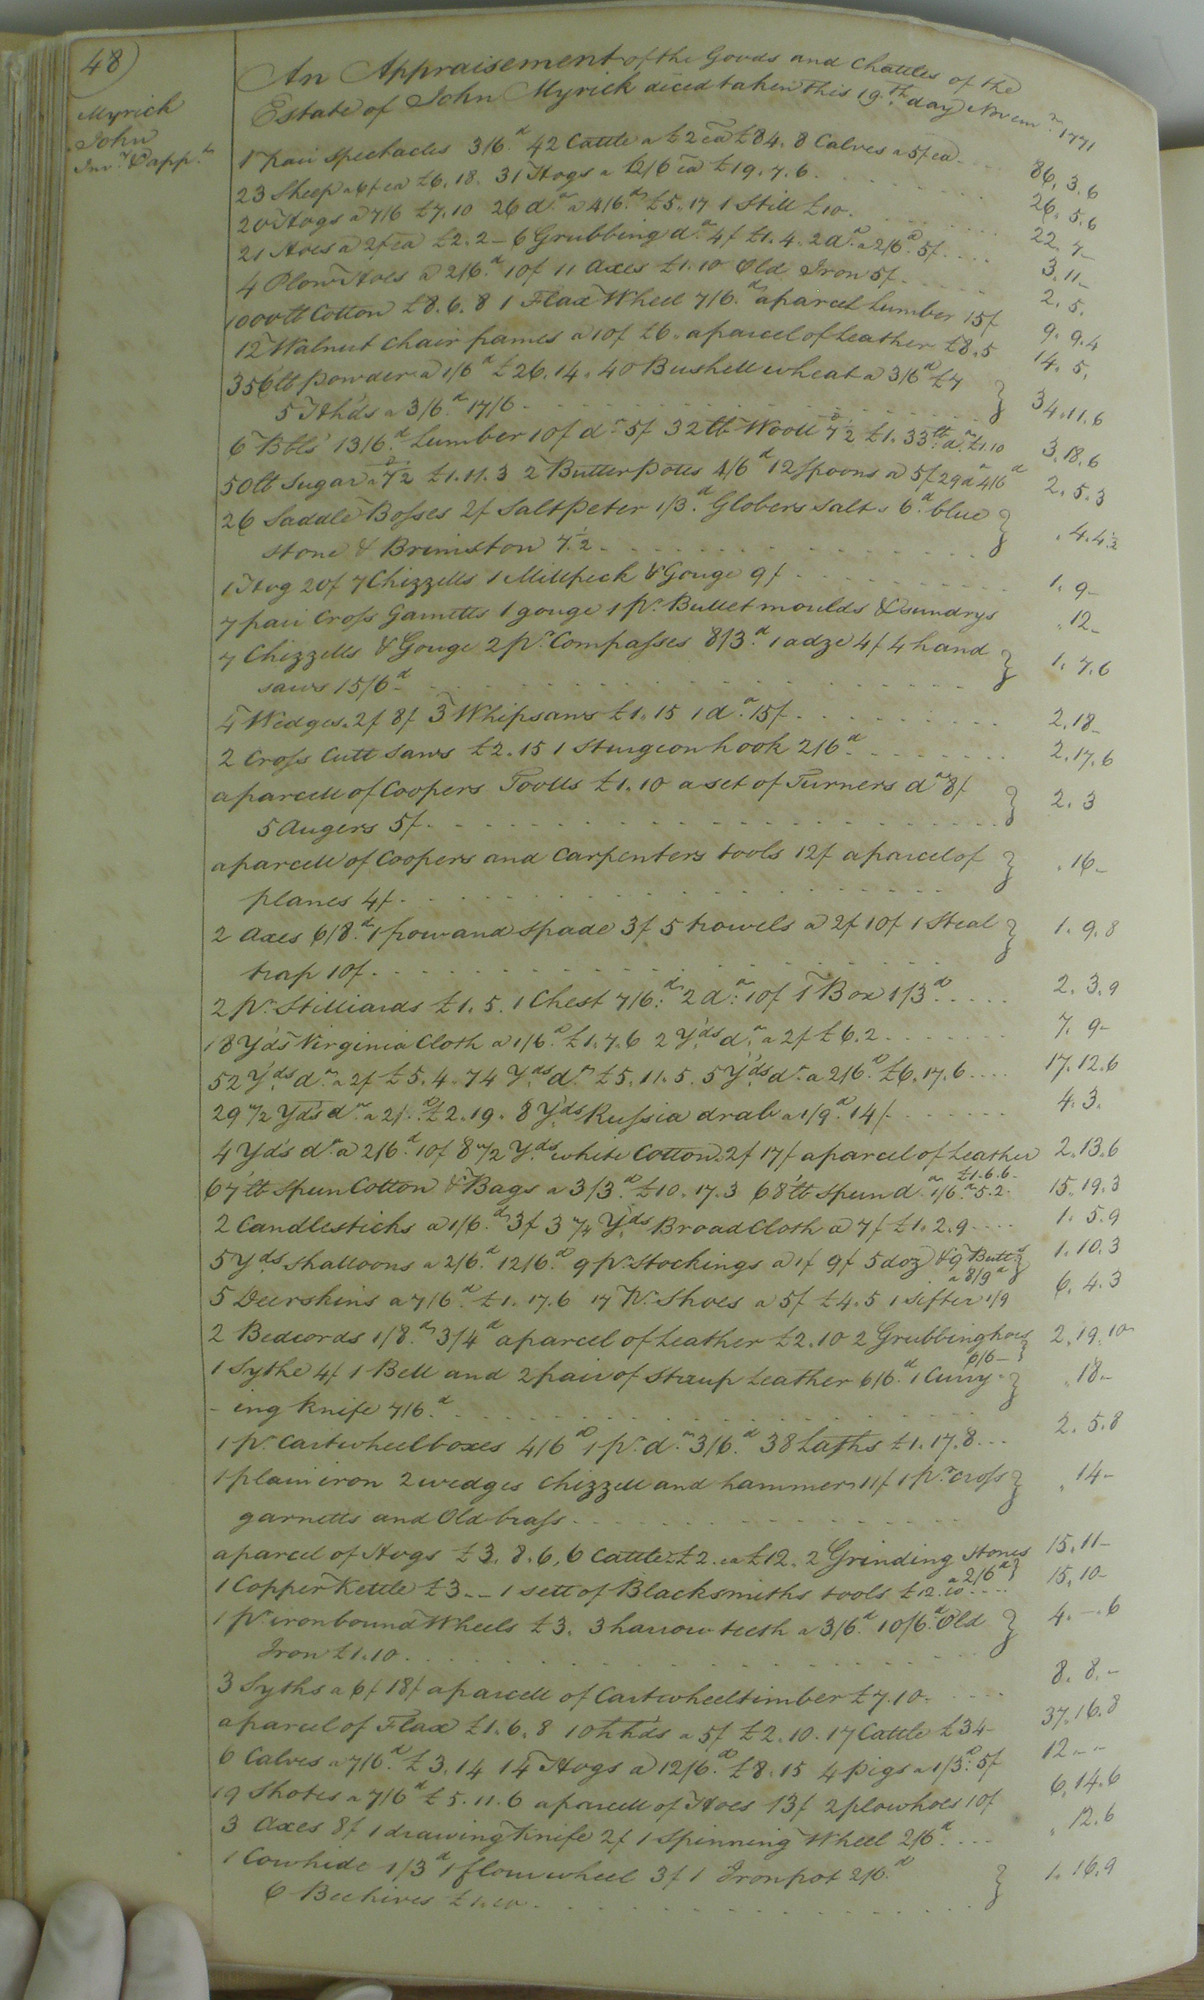 48)
Myrick
John
Inv.r & app.t
An Appraisement of the Goods and Chattles of the
Estate of John Myrick deced taken this 19.th day Novem.r 1771
1 pair spectacles 3/6.d 42 Cattle a £2 ea £84. 8 Calves a 5/ ea 86, 3. 6
23 Sheep a 6/ ea £6. 18. 31 Hogs a 12/6 ea £19. 7. 6. 26. 5. 6
20 Hogs a 7/6 £7. 10 26 do. a 4/6.d £5. 17 1 Still £10. 22. 7 -
21 Hoes a 2/ ea £2. 2 - 6 Grubbing do. 4/ £1. 4. 2 do. a 2/6.d 5/. 3. 11 -
4 Plow Hoes a 2/6.d 10/ 11 Axes £1. 10 Old Iron 5/. 2. 5.
1000 lb Cotton £8. 6. 8 1 Flax Wheel 7/6.d a parcel Lumber 15/ 9. 9. 4
12 Walnut chair frames a 10/ £6. a parcel of Leather £8. 5 14. 5.
356 lb powder a 1/6.d £26. 14. 40 Bushell wheat a 3/6.d £7 }
5 Hhds a 3/6.d 17/6. 34. 11. 6
6 Bbls 13/6.d Lumber 10/ do 5/ 32 lb Wooll 7½ £1. 33 lb do. £1. 10 3. 18. 6
50 lb Sugar a 7½ £1. 11. 3 2 Butter potts 4/6.d 12 Spoons a 5/ 29 do 4/6.d 2. 5. 3
26 Saddle Bosses 2/ Salt peter 1/3.d Globers Salt. 6.d blue }
stone & Brimston 7½ . 4. 4½
1 Hog 20/ 7 Chizzells 1 Millpeck & Gouge 9/ 1. 9 -
7 pair Cross Garnetts 1 gouge 1 pr. Bullet moulds & Sundrys . 12 -
7 Chizzells & Gouge 2 pr. Compasses 8/3.d 1 adze 4/ 4 hand }
saws 15/6.d 1. 7. 6
4 Wedges. 2/ 8/ 3 Whipsaws £1. 15 1 do. 15/. 2. 18 -
2 Cross Cutt Saws £2. 15 1 Sturgeon hook 2/6.d 2. 17. 6
a parcell of Coopers Toolls £1. 10 a set of Turners do 8/ }
5 Augers 5/. 2. 3
a parcell of Coopers and Carpenters tools 12/ a parcel of }
planes 4/. . 16 -
2 Axes 6/8.d 1 frow and Spade 3/ 5 trowels a 2/ 10/ 1 Steal }
trap 10/. 1. 9. 8
2 pr. Stilliards £1. 5. 1 Chest 7/6.d 2 do: 10/ 1 Box 1/3.d 2. 3. 9
18 Yds Virginia Cloth a 1/6.d £1. 7. 6 2 Yds do. a 2/ £6. 2. 7. 9 -
52 Yds do. a 2/ £5. 4. 74 Yds do. £5. 11. 5. 5 Yds do. a 2/6.d £6. 17. 6 17. 12. 6
29 ½ Yds do a 2/.d £2. 19. 8 Yds Russia drab a 1/9.d 14/ 4. 3.
4 Yds do. a 2/6.d 10/ 8 ½ Yds white Cotton. 2/ 17/ a parcel of Leather £1. 6. 6. 2. 13. 6
67 lb Spun Cotton & Bags a 3/3.d £10. 17. 3 68 lb Spun do 1/6.d 5. 2. 15. 19. 3
2 Candlesticks a 1/6.d 3/ 3 ¼ Yds Broad Cloth a 7/ £1. 2. 9 1. 5. 9
5 Yds Shalloons a 2/6.d 12/6.d 9 pr. Stockings a 1/ 9/ 5 doz & 9 Butt.s a 8/9.d } 1. 10. 3
5 Deerskins a 7/6.d £1. 17. 6 17 Pr. Shoes a 5/ £4. 5 1 Sifter 1/9 6. 4. 3
2 Bedcords 1/8.d 3/4.d a parcel of Leather £2. 10 2 Grubbinghoes 6/6 - } 2. 19. 10
1 Sythe 4/ 1 Bell and 2 pair of Stirup Leather 6/6.d 1 Curry- }
- ing Knife 7/6.d . 18 -
1 pr. Cartwheel boxes 4/6.d 1 pr. do. 3/6.d 38 Laths £1. 17. 8 2. 5. 8
1 plain iron 2 wedges Chizzell and hammer 11/ 1 pr. Cross }
garnetts and Old brass . 14 -
a parcel of Hogs £3. 8. 6, 6 Cattle £2. ea £12. 2 Grinding Stones a 2/6.d } 15. 11 -
1 Copper Kettle £3 - - 1 sett of Blacksmiths tools £12. 10 15. 10 -
1 pr. ironbound Wheels £3. 3 harrow teeth a 3/6.d 10/6.d Old }
Iron £1. 10. 4. -. 6
3 Syths a 6/ 18/ a parcell of Cartwheel timber £7. 10. 8. 8. -
a parcel of Flax £1. 6. 8 10 hhds a 5/ £2. 10. 17 Cattle £34 - 37. 16. 8
6 Calves a 7/6.d £3. 14 14 Hogs a 12/6.d £8. 15 4 pigs a 1/3.d 5/ 12 - -
19 Shotes a 7/6.d £5. 11. 6 a parcell of Hoes 13/ 2 plowhoes 10/ 6, 14. 6
3 Axes 8/ 1 drawing Knife 2/ 1 Spinning Wheel 2/6.d . 12. 6
1 Cowhide 1/3.d 1 flourwheel 3/ 1 Ironpot 2/6.d }
6 Beehives £1. 10. 1. 16. 9